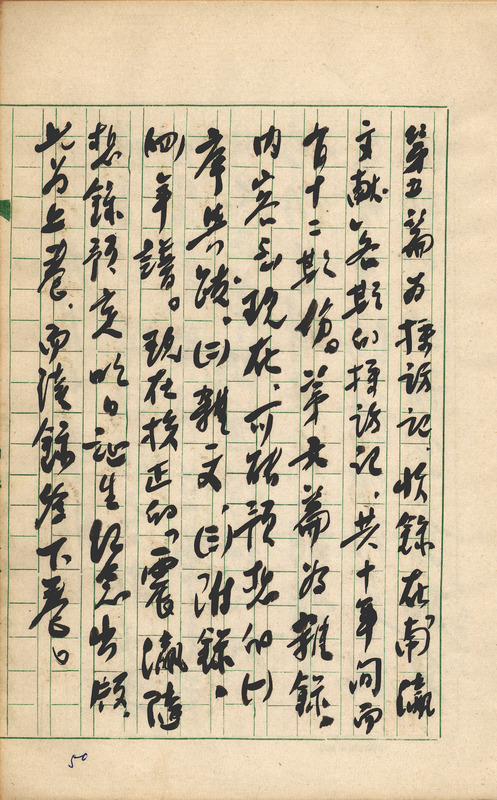 第五篇为採訪記，收錄在南瀛
文献各期的採訪記，共十年间而
有十二期份。第六篇为雜錄，
内容到现在，可能預想的㈠
序與跋，㈡雜文，㈢附錄，
㈣年譜。现在校正的「震瀛隨
想錄預定明日誕生纪念出版，
此为上卷，而續錄為下卷。
50